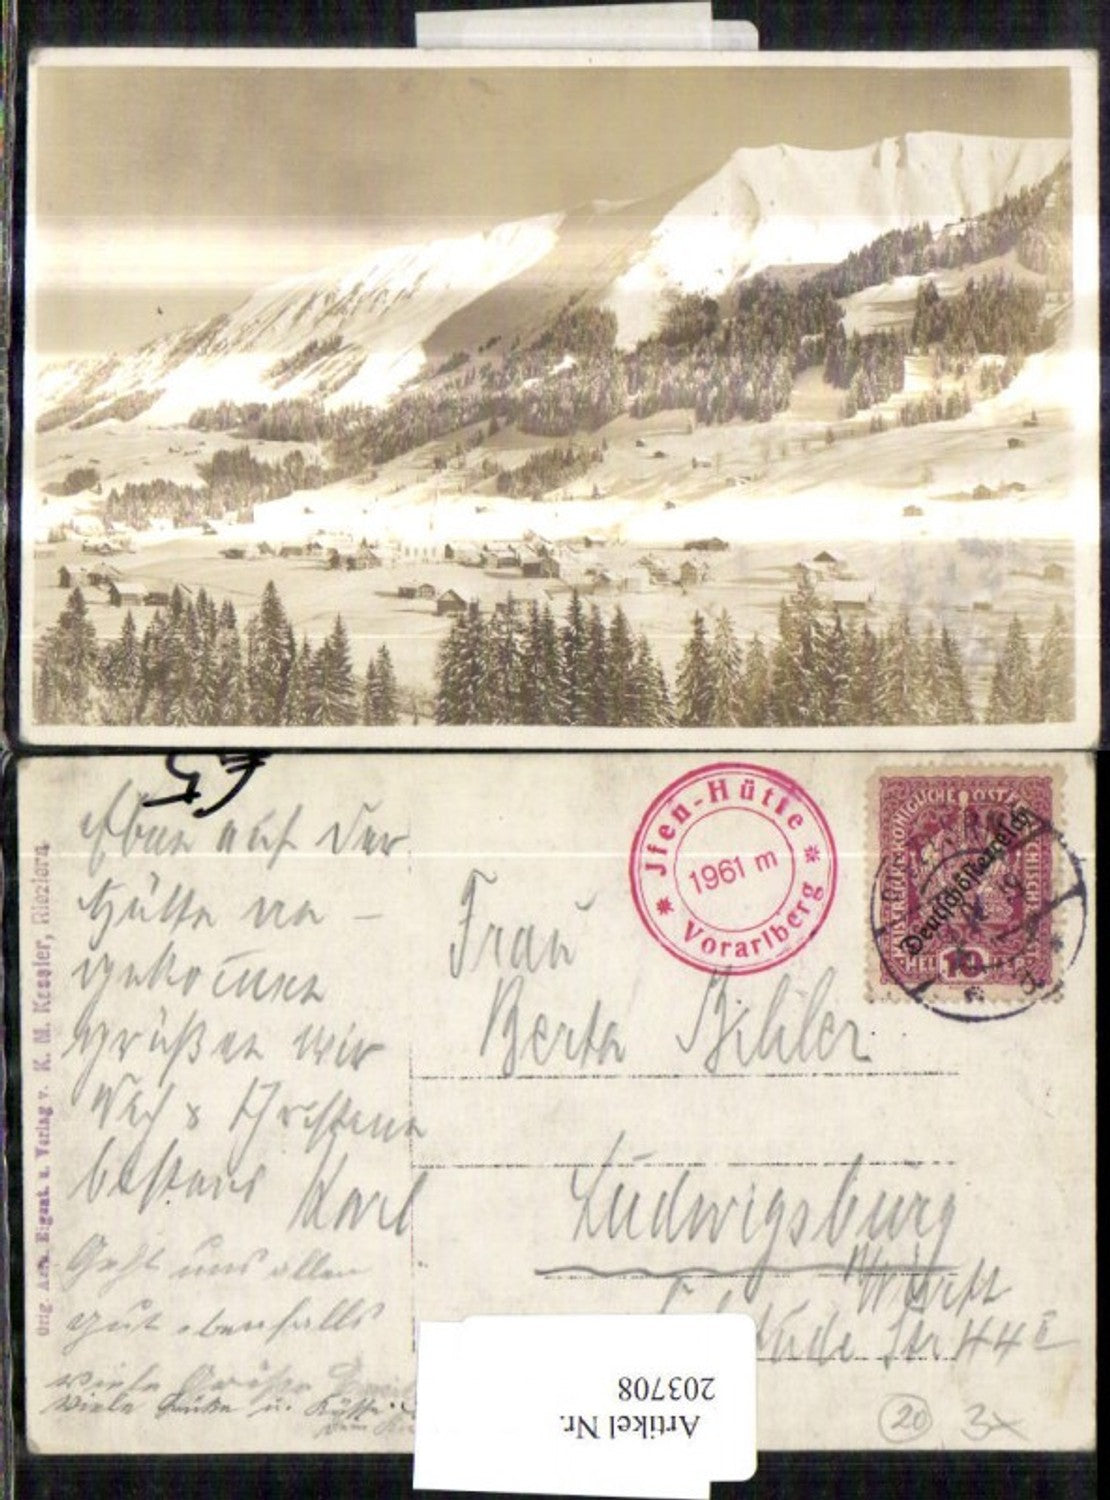 Eben auf der
Hütte an-
gekommen
grüßen wir
bestens Karl
Geht uns allen
gut ebenfalls
viele Grüße
viele Grüße u. Küsse
Orig. Aufn. Eigent. u. Verlag v. K. M. Kessler, Riezlern.
Jfen-Hütte
1961 m
Vorarlberg
KAISERLICHE KÖNIGLICHE ÖSTERREICHISCHE POST
Deutschösterreich
HELLER 10
Frau
Berta Bihler
Ludwigsburg
Württ
Str 44 II
Artikel Nr.
203708
20 3x